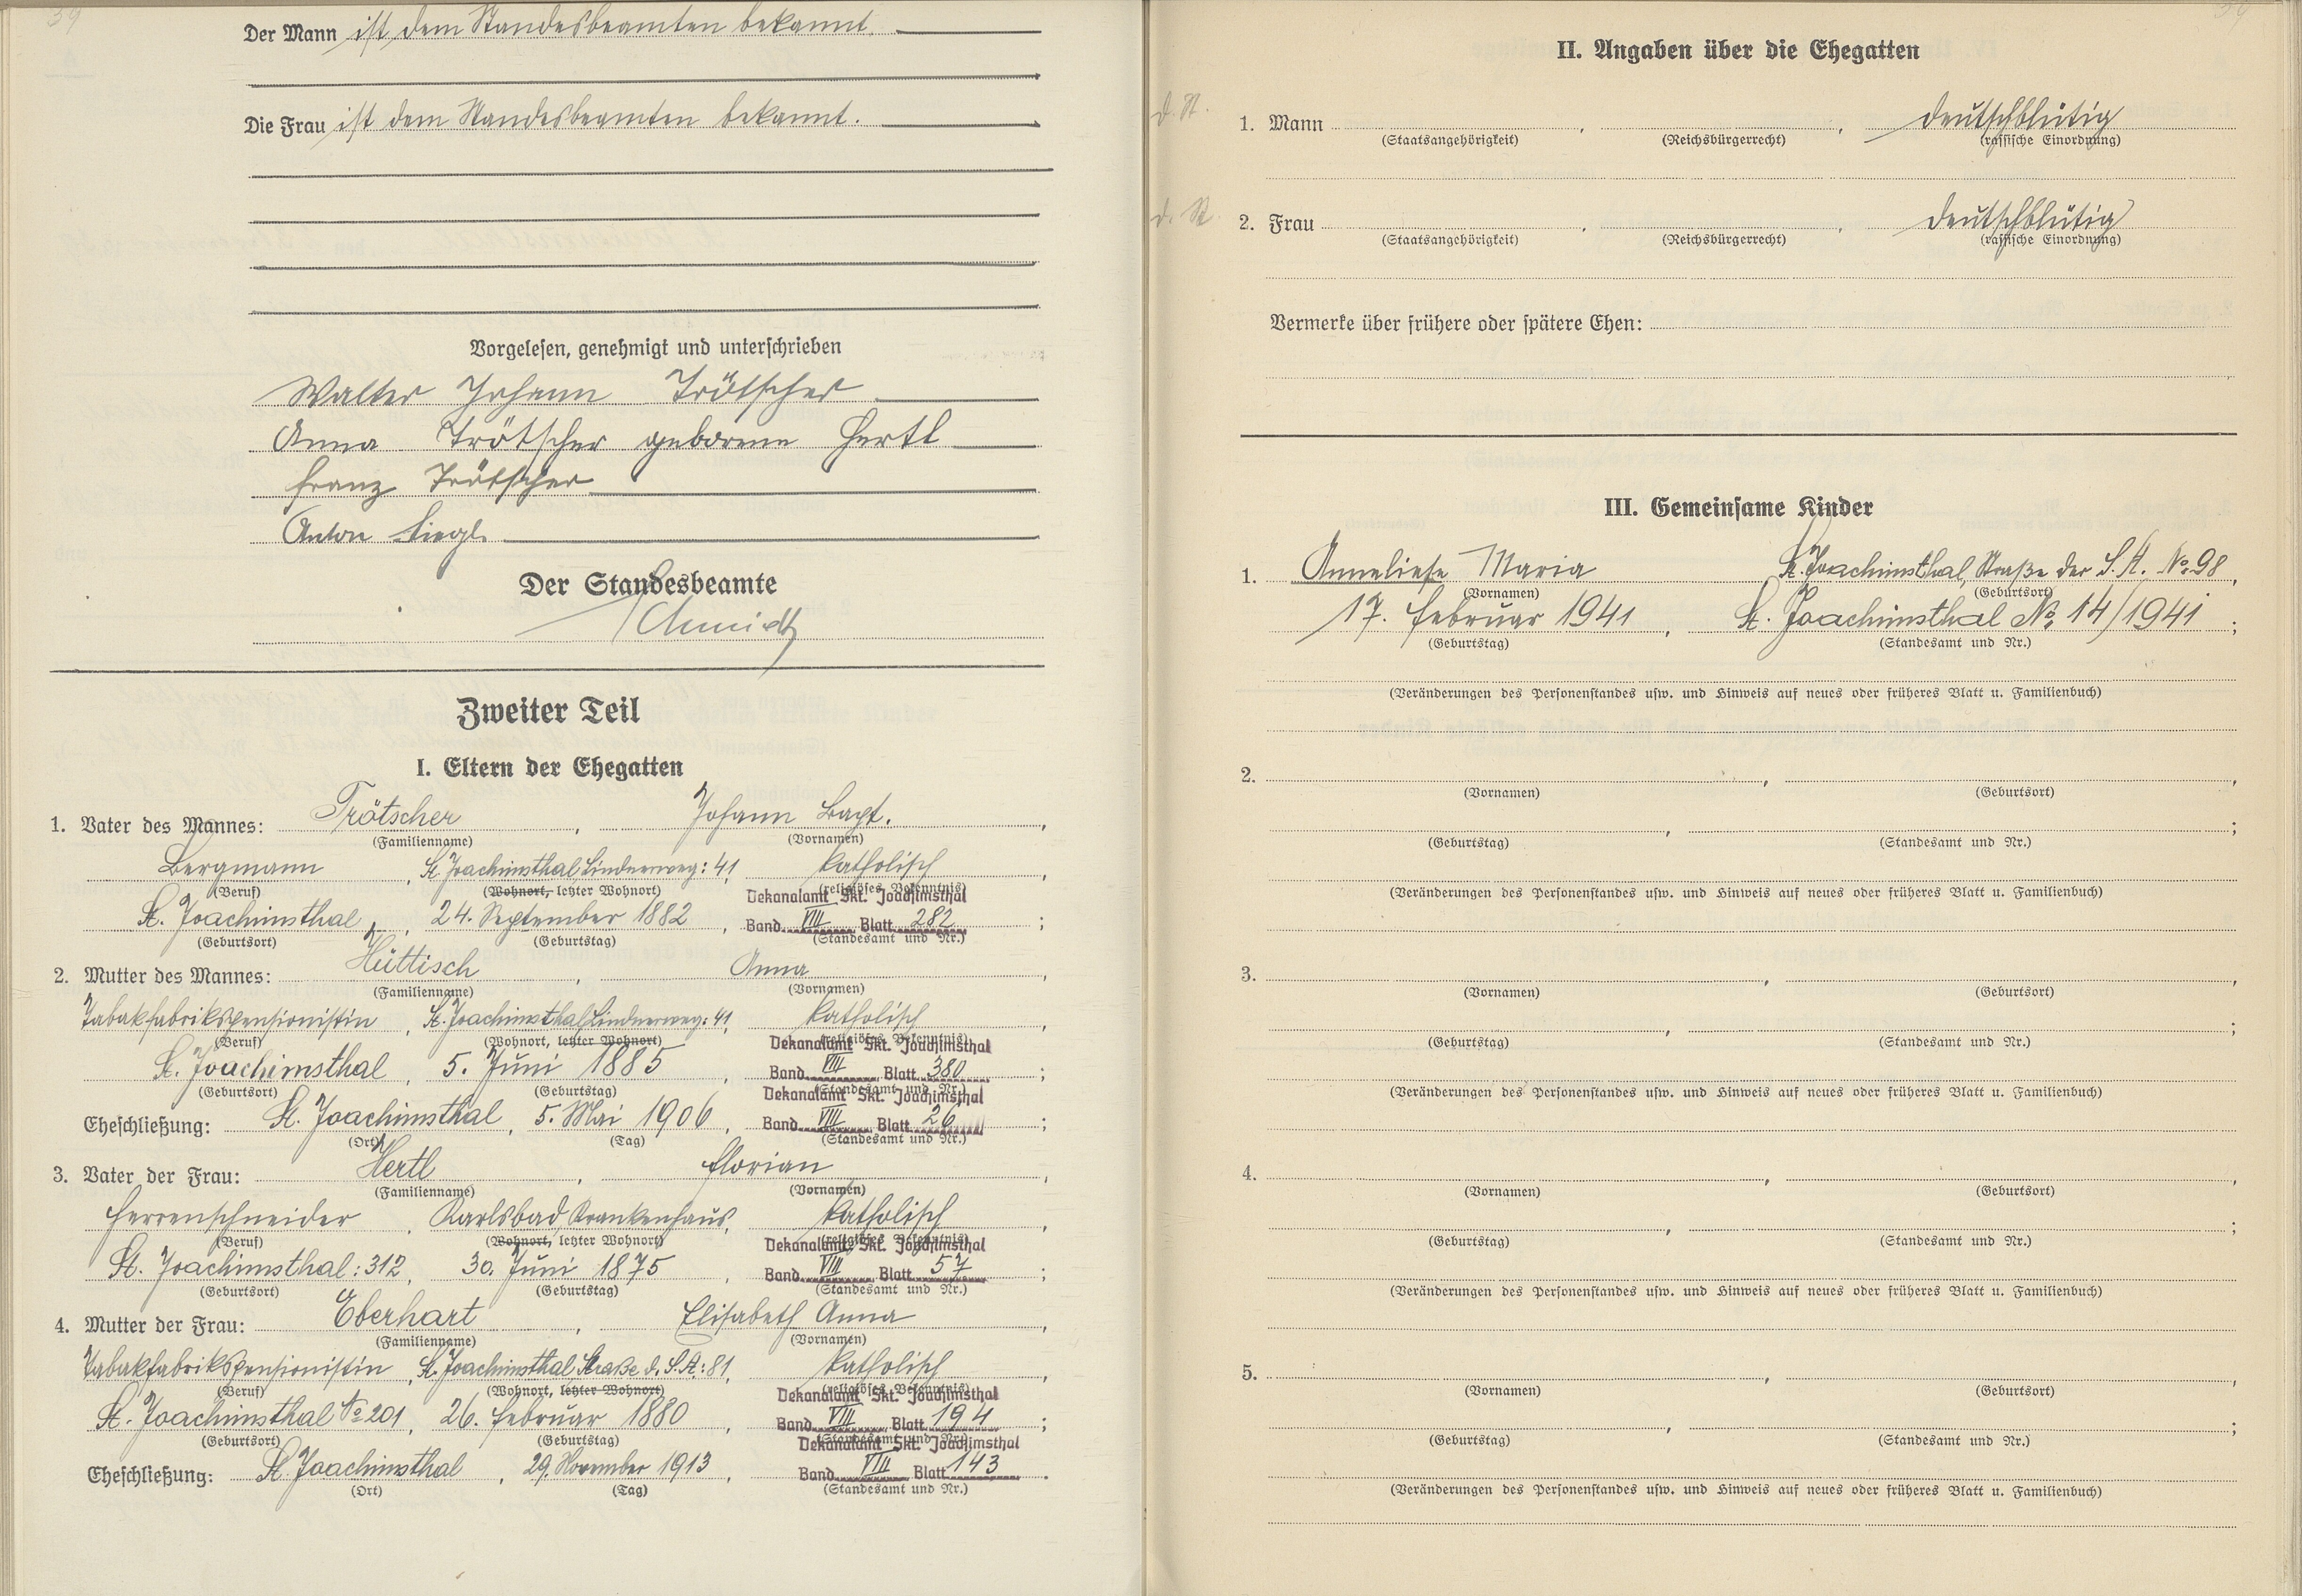 39
Der Mann ist dem Standesbeamten bekannt.
Die Frau ist dem Standesbeamten bekannt.
Vorgelesen, genehmigt und unterschrieben
Walter Johann Trötscher
Anna Trötscher geborene Hertl
Franz Trötscher
Anton Siegl
Der Standesbeamte
Schmidt
Zweiter Teil
I. Eltern der Ehegatten
1. Vater des Mannes: Trötscher, Johann Bapt.,
(Familienname) (Vornamen)
Bergmann, St. Joachimsthal Lindnerweg: 41, katholisch,
(Beruf) (Wohnort, letzter Wohnort) (religiöses Bekenntnis)
Dekanalamt Skt. Joachimsthal
St. Joachimsthal, 24. September 1882, Band VIII Blatt 282;
(Geburtsort) (Geburtstag) (Standesamt und Nr.)
2. Mutter des Mannes: Hüttisch, Anna,
(Familienname) (Vornamen)
Tabakfabrikspensionistin, St. Joachimsthal Lindnerweg: 41, katholisch,
(Beruf) (Wohnort, letzter Wohnort) (religiöses Bekenntnis)
Dekanalamt Skt. Joachimsthal
St. Joachimsthal, 5. Juni 1885, Band VIII Blatt 380;
(Geburtsort) (Geburtstag) (Standesamt und Nr.)
Dekanalamt Skt. Joachimsthal
Eheschließung: St. Joachimsthal, 5. Mai 1906, Band VIII Blatt 26;
(Ort) (Tag) (Standesamt und Nr.)
3. Vater der Frau: Hertl, Florian,
(Familienname) (Vornamen)
Herrenschneider, Karlsbad, Krankenhaus, katholisch,
(Beruf) (Wohnort, letzter Wohnort) (religiöses Bekenntnis)
Dekanalamt Skt. Joachimsthal
St. Joachimsthal: 312, 30. Juni 1875, Band VIII Blatt 57;
(Geburtsort) (Geburtstag) (Standesamt und Nr.)
4. Mutter der Frau: Eberhart, Elisabeth Anna,
(Familienname) (Vornamen)
Tabakfabrikspensionistin, St. Joachimsthal Straße d. S.A.: 81, katholisch,
(Beruf) (Wohnort, letzter Wohnort) (religiöses Bekenntnis)
Dekanalamt Skt. Joachimsthal
St. Joachimsthal No 201, 26. Februar 1880, Band VIII Blatt 194;
(Geburtsort) (Geburtstag) (Standesamt und Nr.)
Dekanalamt Skt. Joachimsthal
Eheschließung: St. Joachimsthal, 29. November 1913, Band VIII Blatt 143.
(Ort) (Tag) (Standesamt und Nr.)
39
II. Angaben über die Ehegatten
d. St.
1. Mann , , deutschblütig
(Staatsangehörigkeit) (Reichsbürgerrecht) (rassische Einordnung)
d. St.
2. Frau , , deutschblütig
(Staatsangehörigkeit) (Reichsbürgerrecht) (rassische Einordnung)
Vermerke über frühere oder spätere Ehen:
III. Gemeinsame Kinder
1. Anneliese Maria St. Joachimsthal, Straße der S.A. No 98,
(Vornamen) (Geburtsort)
17. Februar 1941, St. Joachimsthal No 14/1941;
(Geburtstag) (Standesamt und Nr.)
(Veränderungen des Personenstandes usw. und Hinweis auf neues oder früheres Blatt u. Familienbuch)
2. , ,
(Vornamen) (Geburtsort)
, ;
(Geburtstag) (Standesamt und Nr.)
(Veränderungen des Personenstandes usw. und Hinweis auf neues oder früheres Blatt u. Familienbuch)
3. , ,
(Vornamen) (Geburtsort)
, ;
(Geburtstag) (Standesamt und Nr.)
(Veränderungen des Personenstandes usw. und Hinweis auf neues oder früheres Blatt u. Familienbuch)
4. , ,
(Vornamen) (Geburtsort)
, ;
(Geburtstag) (Standesamt und Nr.)
(Veränderungen des Personenstandes usw. und Hinweis auf neues oder früheres Blatt u. Familienbuch)
5. , ,
(Vornamen) (Geburtsort)
, ;
(Geburtstag) (Standesamt und Nr.)
(Veränderungen des Personenstandes usw. und Hinweis auf neues oder früheres Blatt u. Familienbuch)